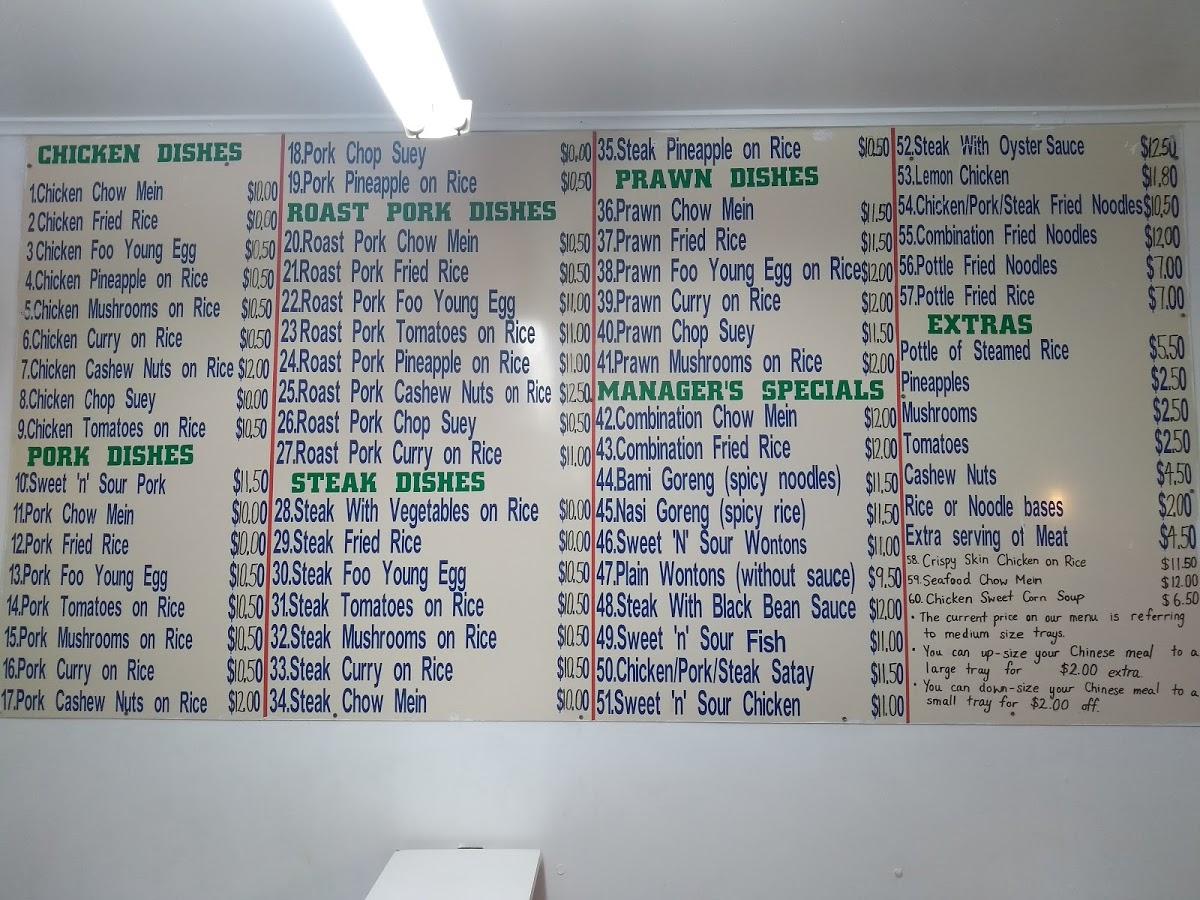 CHICKEN DISHES
1.Chicken Chow Mein $10.00
2 Chicken Fried Rice $10.00
3 Chicken Foo Young Egg $10.50
4.Chicken Pineapple on Rice $10.50
5.Chicken Mushrooms on Rice $10.50
6.Chicken Curry on Rice $10.50
7.Chicken Cashew Nuts on Rice $12.00
8.Chicken Chop Suey $10.00
9.Chicken Tomatoes on Rice $10.50
PORK DISHES
10.Sweet 'n' Sour Pork $11.50
11.Pork Chow Mein $10.00
12.Pork Fried Rice $10.00
13.Pork Foo Young Egg $10.50
14.Pork Tomatoes on Rice $10.50
15.Pork Mushrooms on Rice $10.50
16.Pork Curry on Rice $10.50
17.Pork Cashew Nuts on Rice $12.00
18.Pork Chop Suey $10.00
19.Pork Pineapple on Rice $10.50
ROAST PORK DISHES
20.Roast Pork Chow Mein $10.50
21.Roast Pork Fried Rice $10.50
22.Roast Pork Foo Young Egg $11.00
23 Roast Pork Tomatoes on Rice $11.00
24.Roast Pork Pineapple on Rice $11.00
25.Roast Pork Cashew Nuts on Rice $12.50
26.Roast Pork Chop Suey $10.50
27.Roast Pork Curry on Rice $11.00
STEAK DISHES
28.Steak With Vegetables on Rice $10.00
29.Steak Fried Rice $10.00
30.Steak Foo Young Egg $10.50
31.Steak Tomatoes on Rice $10.50
32.Steak Mushrooms on Rice $10.50
33.Steak Curry on Rice $10.50
34.Steak Chow Mein $10.00
35.Steak Pineapple on Rice $10.50
PRAWN DISHES
36.Prawn Chow Mein $11.50
37.Prawn Fried Rice $11.50
38.Prawn Foo Young Egg on Rice $12.00
39.Prawn Curry on Rice $12.00
40.Prawn Chop Suey $11.50
41.Prawn Mushrooms on Rice $12.00
MANAGER'S SPECIALS
42.Combination Chow Mein $12.00
43.Combination Fried Rice $12.00
44.Bami Goreng (spicy noodles) $11.50
45.Nasi Goreng (spicy rice) $11.50
46.Sweet 'N' Sour Wontons $11.00
47.Plain Wontons (without sauce) $9.50
48.Steak With Black Bean Sauce $12.00
49.Sweet 'n' Sour Fish $11.00
50.Chicken/Pork/Steak Satay $11.50
51.Sweet 'n' Sour Chicken $11.00
52.Steak With Oyster Sauce $12.50
53.Lemon Chicken $11.80
54.Chicken/Pork/Steak Fried Noodles $10.50
55.Combination Fried Noodles $12.00
56.Pottle Fried Noodles $7.00
57.Pottle Fried Rice $7.00
EXTRAS
Pottle of Steamed Rice $5.50
Pineapples $2.50
Mushrooms $2.50
Tomatoes $2.50
Cashew Nuts $4.50
Rice or Noodle bases $2.00
Extra serving of Meat $4.50
58. Crispy Skin Chicken on Rice $11.50
59. Seafood Chow Mein $12.00
60. Chicken Sweet Corn Soup $6.50
• The current price on our menu is referring
to medium size trays.
• You can up-size your Chinese meal to a
large tray for $2.00 extra.
• You can down-size your Chinese meal to a
small tray for $2.00 off.